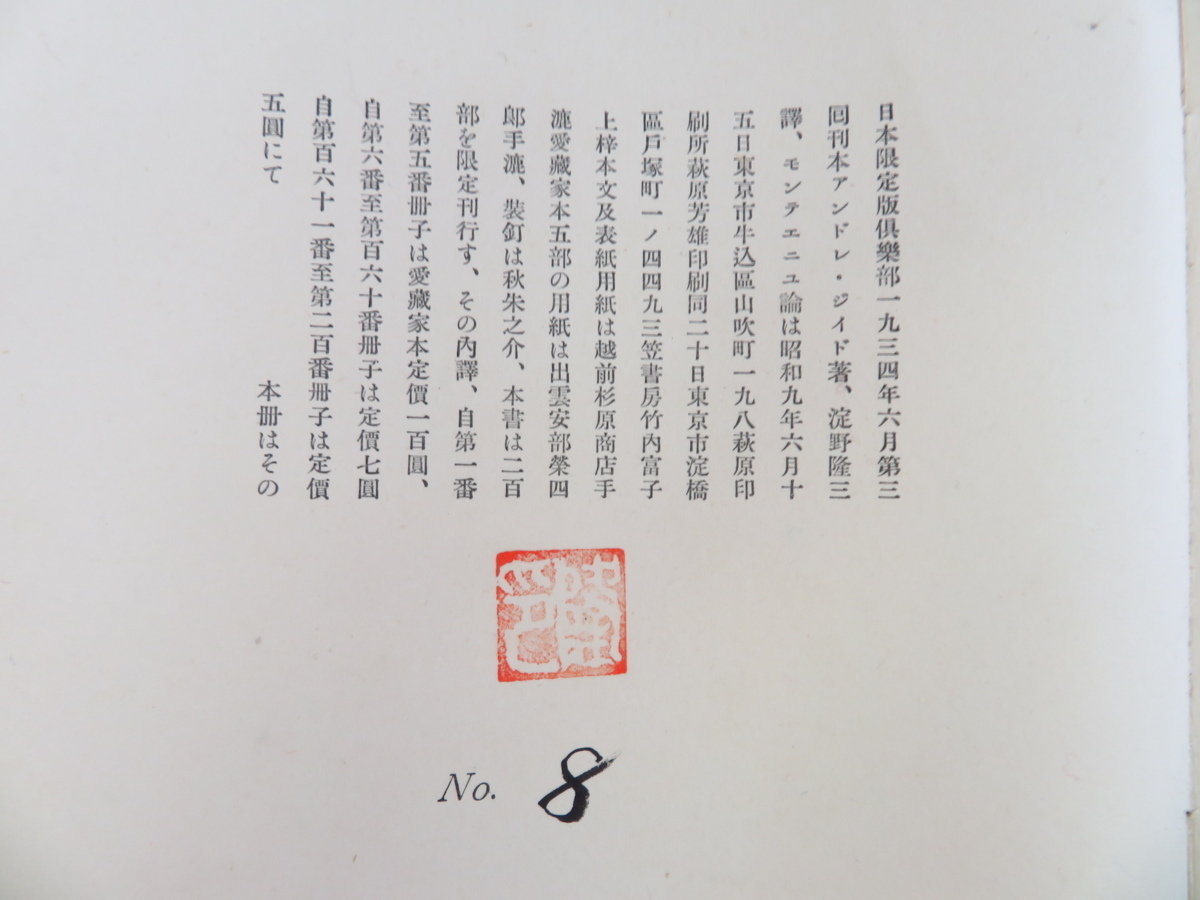 日本限定版倶樂部一九三四年六月第三
囘刊本アンドレ・ジイド著、淀野隆三
譯、モンテエニユ論は昭和九年六月十
五日東京市牛込區山吹町一九八萩原印
刷所萩原芳雄印刷同二十日東京市淀橋
區戸塚町一ノ四四九三笠書房竹内富子
上梓本文及表紙用紙は越前杉原商店手
漉愛藏家本五部の用紙は出雲安部榮四
郎手漉、裝釘は秋朱之介、本書は二百
部を限定刊行す、その內譯、自第一番
至第五番冊子は愛藏家本定價一百圓、
自第六番至第百六十番冊子は定價七圓
自第百六十一番至第二百番冊子は定價
五圓にて
本冊はその
No. 8